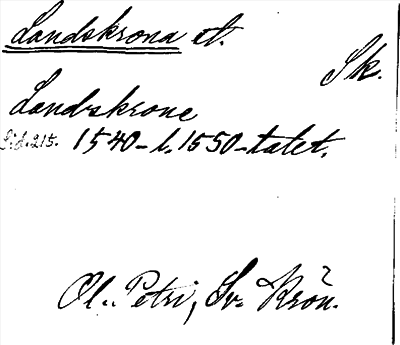 Landskrona st.
Sk.
Landskrone
Sid. 215. 1540-t. 1550-talet.
Ol. Petri, Sv. Krön.